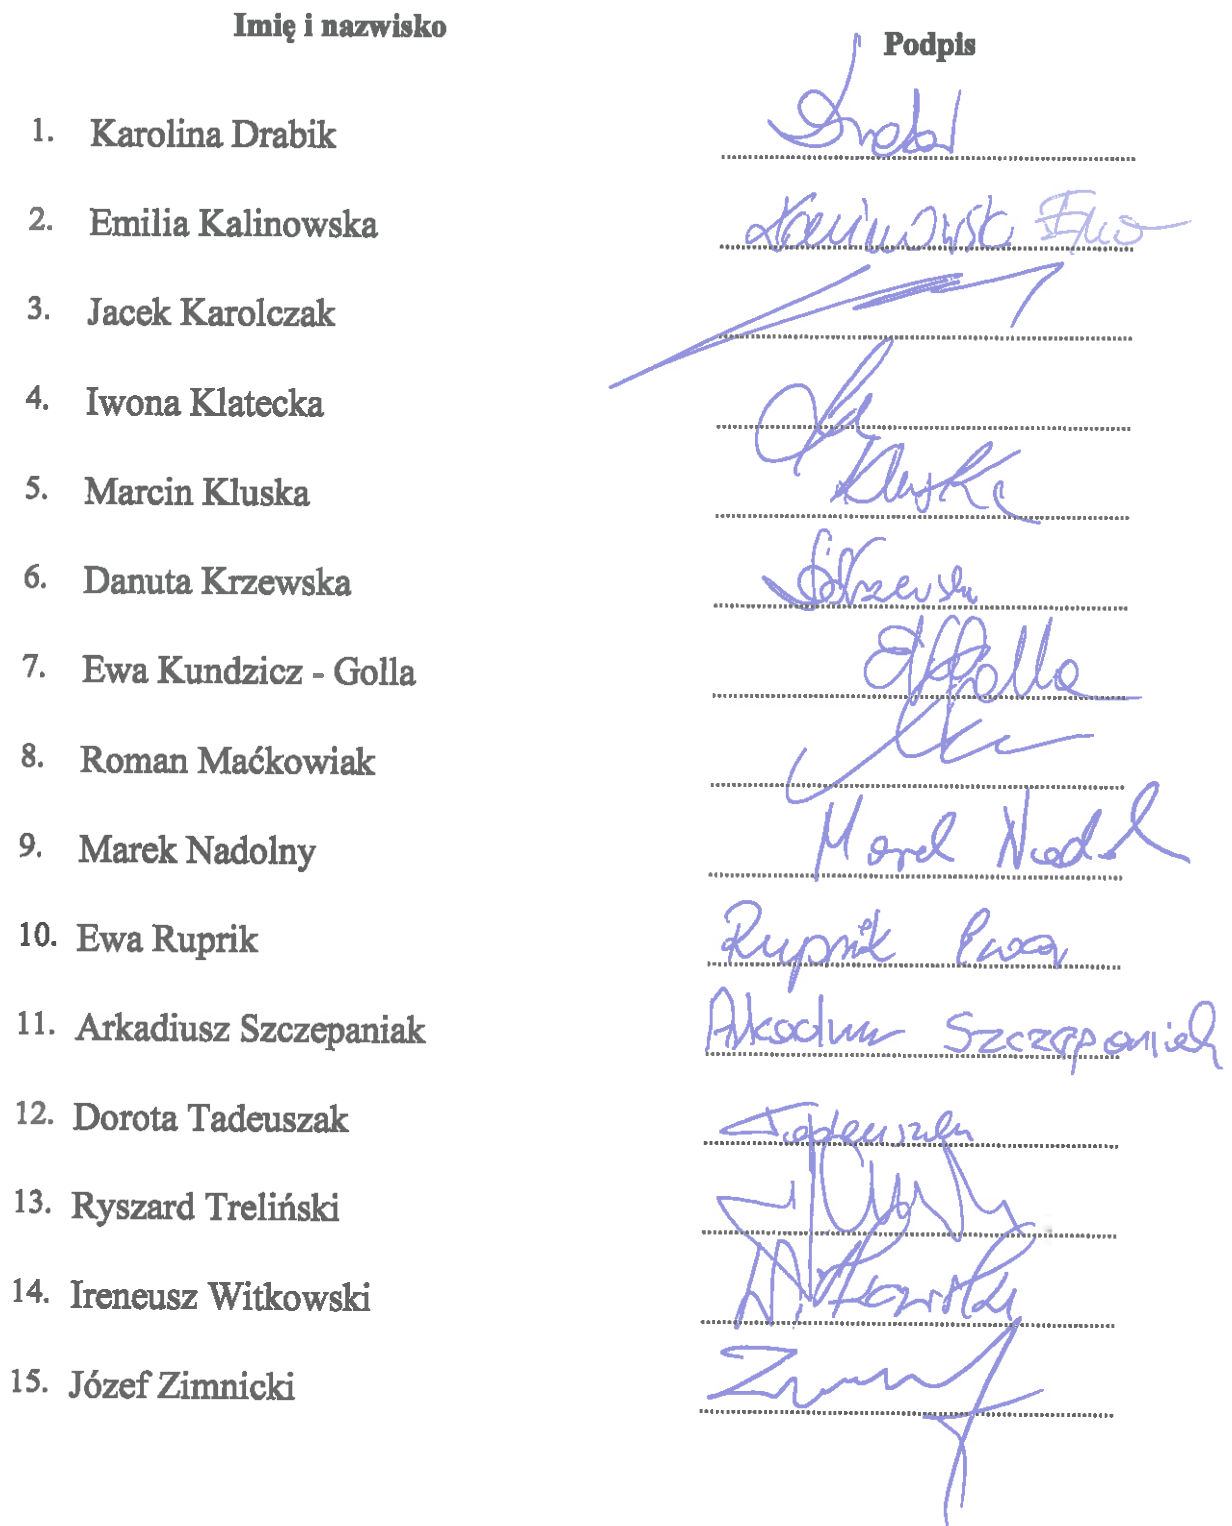 Imię i nazwisko Podpis
1. Karolina Drabik
2. Emilia Kalinowska
3. Jacek Karolczak
4. Iwona Klatecka
5. Marcin Kluska Kluska
6. Danuta Krzewska DKrzewska
7. Ewa Kundzicz - Golla
8. Roman Maćkowiak
9. Marek Nadolny Marek
10. Ewa Ruprik Ruprik Ewa
11. Arkadiusz Szczepaniak Arkadiusz Szczepaniak
12. Dorota Tadeuszak Tadeuszak
13. Ryszard Treliński
14. Ireneusz Witkowski Witkowski
15. Józef Zimnicki